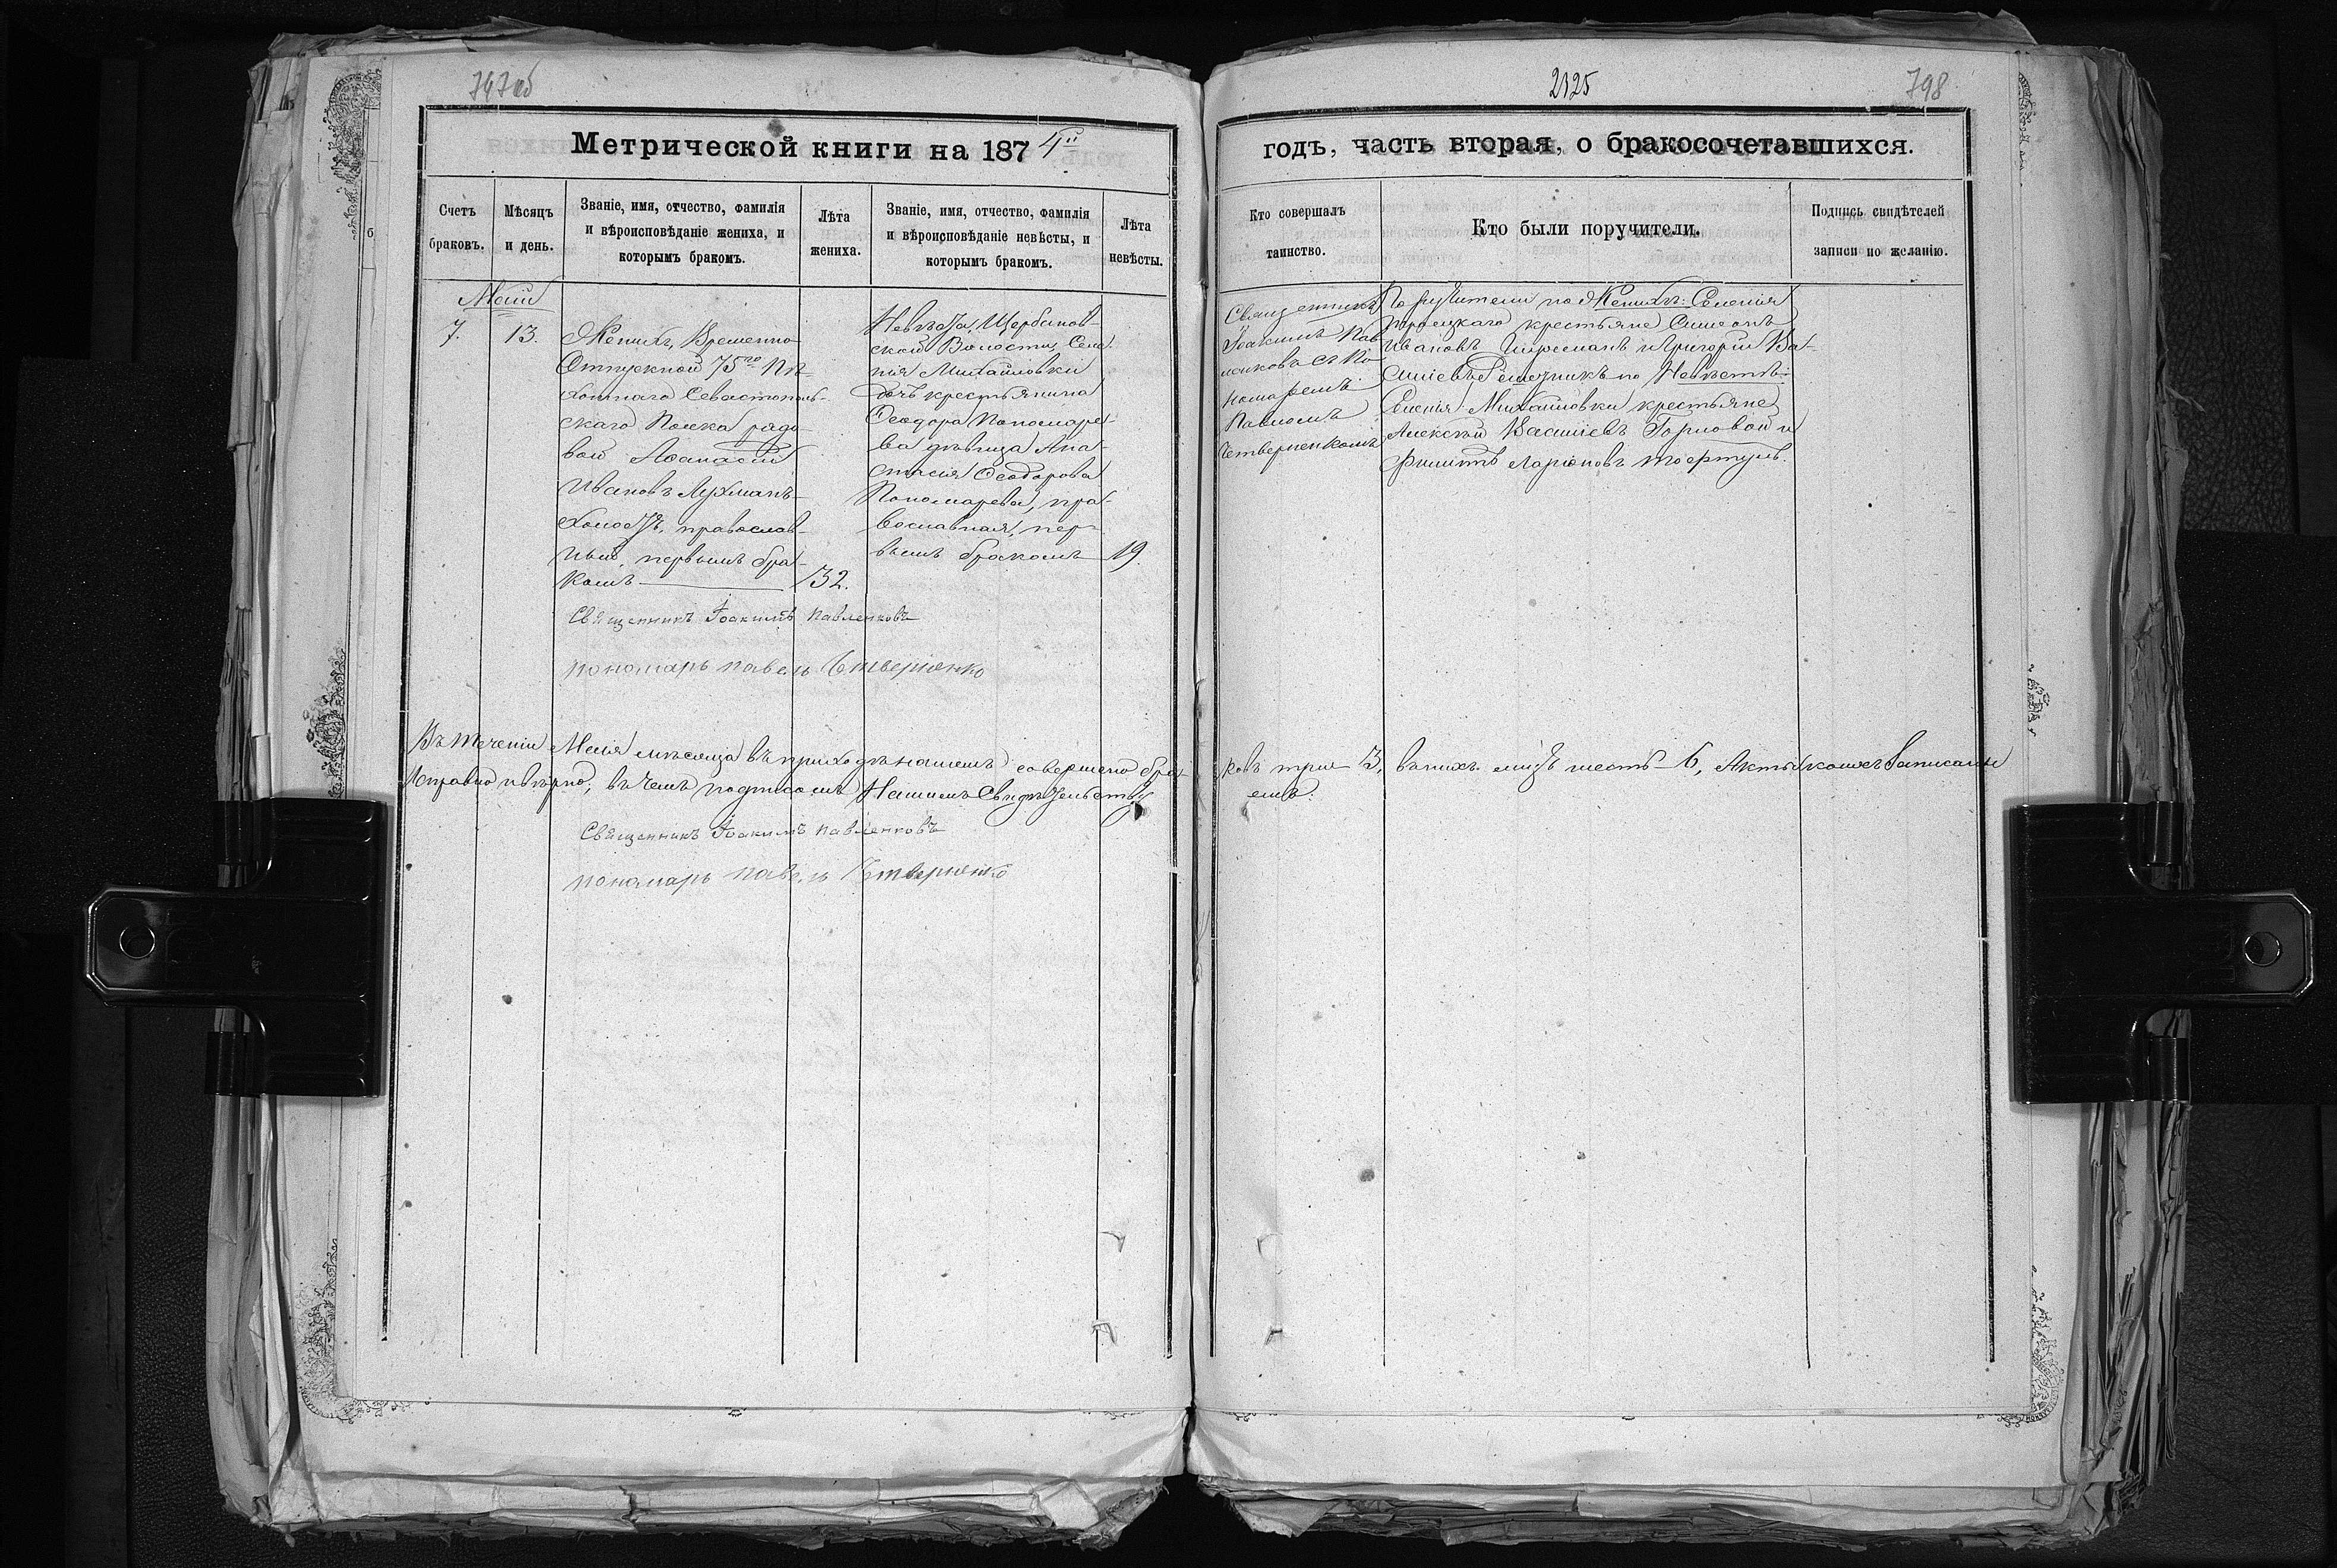 797об
2125
798
Метрической книги на 1874й
годъ, часть вторая, о бракосочетавшихся.
Счетъ браковъ.
Мѣсяцъ и день.
Званіе, имя, отчество, фамилія
и вѣроисповѣданіе жениха, и
которымъ бракомъ.
Лѣта
жениха.
Званіе, имя, отчество, фамилія
и вѣроисповѣданіе невѣсты, и
которымъ бракомъ.
Лѣта
невѣсты.
Кто совершалъ
таинство.
Кто были поручители.
Подпись свидѣтелей
записи по желанію.
Маій
7.
13.
Женихъ, Временно
Отпускной 75го Пѣ-
хотнаго Севастополь-
скаго Полка рядо-
вой Аѳанасій
Ивановъ Лухман-
Холодъ, православ-
ный, первымъ бра-
комъ
32.
Невѣста, Щербинов-
ской Волости, Селе-
нія Михайловки
дочь крестьянина
Ѳеодора Пономаре-
ва дѣвица Ана-
стасія Ѳеодорова
Пономарева, пра-
вославная, пер-
вымъ бракомъ
19.
Священникъ
Іоакимъ Пав-
ленковъ съ По-
номаремъ
Павломъ
Четверненкомъ
Поручители по Женихѣ: Селенія
крестьяне Симеонъ
Ивановъ и Григорій Ва-
силіевъ по Невѣстѣ:
Селенія Михайловки крестьяне
Алексѣй Василіевъ Горловой и
Филиппъ Ларіоновъ
Священникъ Іоакимъ Павленковъ
пономарь павелъ Четверненко
Въ теченіи Маія мѣсяца въ приходѣ нашемъ совершено бра-
ковъ три 3, въ нихъ лицъ шесть 6, Акты коихъ записаны
исправно и вѣрно, въ чемъ подписомъ Нашимъ Свидѣтельству-
емъ.
Священникъ Іоакимъ Павленковъ
пономарь павелъ Четверненко